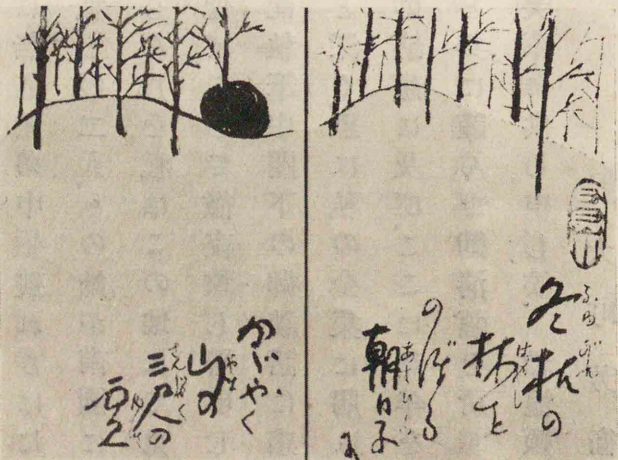 冬枯の
林を
のぼる
朝日子に
かゞやく
山の
三尺の
雪